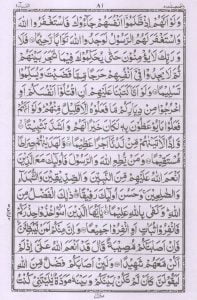 ٨١
وَلَوْ اَنَّهُمْ اِذْ ظَّلَمُوْٓا اَنْفُسَهُمْ جَآءُوْكَ فَاسْتَغْفَرُوا
اللّٰهَ وَاسْتَغْفَرَ لَهُمُ الرَّسُوْلُ لَوَجَدُوا اللّٰهَ تَوَّابًا رَّحِيْمًا فَلَا
وَرَبِّكَ لَا يُؤْمِنُوْنَ حَتّٰى يُحَكِّمُوْكَ فِيْمَا شَجَرَ بَيْنَهُمْ
ثُمَّ لَا يَجِدُوْا فِيْٓ اَنْفُسِهِمْ حَرَجًا مِّمَّا قَضَيْتَ وَيُسَلِّمُوْا
تَسْلِيْمًا وَلَوْ اَنَّا كَتَبْنَا عَلَيْهِمْ اَنِ اقْتُلُوْٓا اَنْفُسَكُمْ اَوِ
اخْرُجُوْا مِنْ دِيَارِكُمْ مَّا فَعَلُوْهُ اِلَّا قَلِيْلٌ مِّنْهُمْ وَلَوْ اَنَّهُمْ
فَعَلُوْا مَا يُوْعَظُوْنَ بِهٖ لَكَانَ خَيْرًا لَّهُمْ وَاَشَدَّ تَثْبِيْتًا
وَّاِذًا لَّاٰتَيْنٰهُمْ مِّنْ لَّدُنَّآ اَجْرًا عَظِيْمًا وَّلَهَدَيْنٰهُمْ صِرَاطًا
مُّسْتَقِيْمًا وَمَنْ يُّطِعِ اللّٰهَ وَالرَّسُوْلَ فَاُولٰٓئِكَ مَعَ الَّذِيْنَ
اَنْعَمَ اللّٰهُ عَلَيْهِمْ مِّنَ النَّبِيّٖنَ وَالصِّدِّيْقِيْنَ وَالشُّهَدَآءِ
وَالصّٰلِحِيْنَ وَحَسُنَ اُولٰٓئِكَ رَفِيْقًا ذٰلِكَ الْفَضْلُ مِنَ
اللّٰهِ وَكَفٰى بِاللّٰهِ عَلِيْمًا يٰٓاَيُّهَا الَّذِيْنَ اٰمَنُوْا خُذُوْا حِذْرَكُمْ
فَانْفِرُوْا ثُبَاتٍ اَوِ انْفِرُوْا جَمِيْعًا وَاِنَّ مِنْكُمْ لَمَنْ لَّيُبَطِّئَنَّ
فَاِنْ اَصَابَتْكُمْ مُّصِيْبَةٌ قَالَ قَدْ اَنْعَمَ اللّٰهُ عَلَيَّ اِذْ لَمْ
اَكُنْ مَّعَهُمْ شَهِيْدًا وَلَئِنْ اَصَابَكُمْ فَضْلٌ مِّنَ اللّٰهِ
لَيَقُوْلَنَّ كَاَنْ لَّمْ تَكُنْ بَيْنَكُمْ وَبَيْنَهٗ مَوَدَّةٌ يّٰلَيْتَنِيْ كُنْتُ